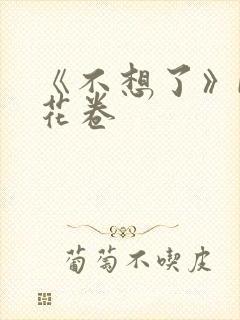 《不想了》
花卷
葡萄不喫皮